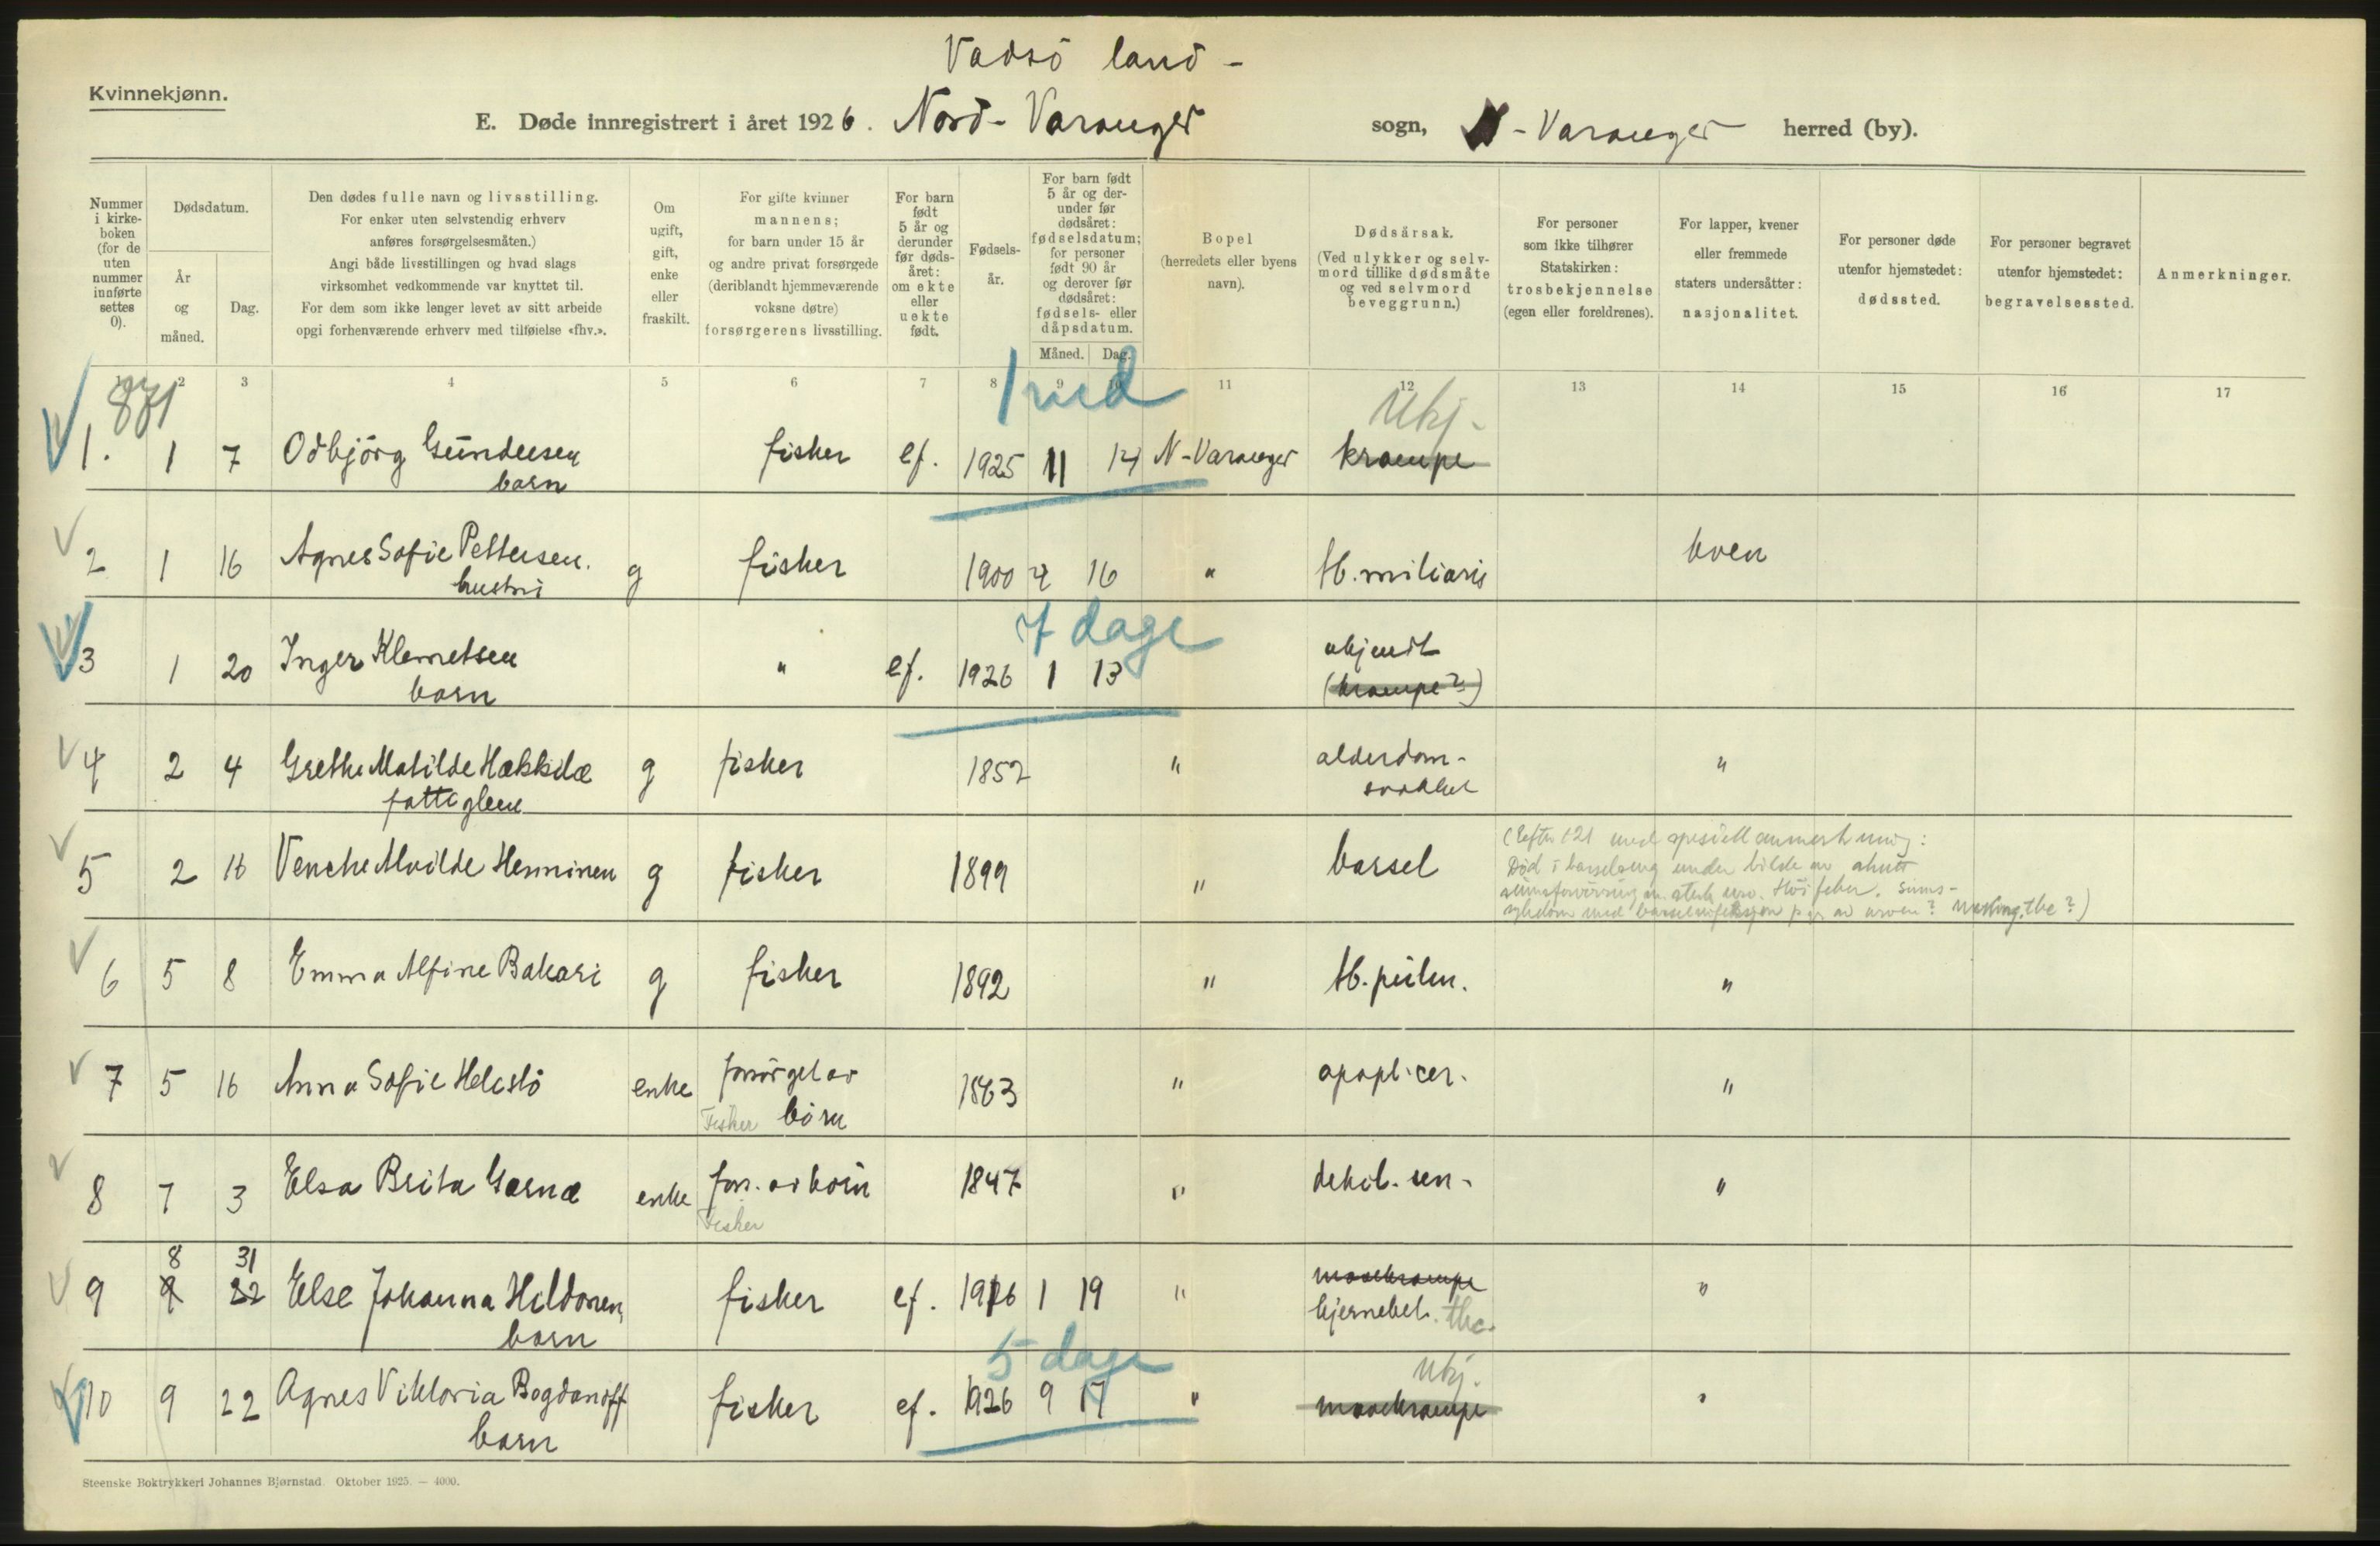 Vadsö land -
Kvinnekjønn.
E. Døde innregistrert i året 1926. Nord-Varanger sogn, N-Varanger herred (by).
Nummer i kirke-boken (for de uten nummer innførte settes 0).
Dødsdatum.
År og måned.
Dag.
Den dødes fulle navn og livsstilling.
For enker uten selvstendig erhverv
anføres forsørgelsesmåten.)
Angi både livsstillingen og hvad slags
virksomhet vedkommende var knyttet til.
For dem som ikke lenger levet av sitt arbeide
opgi forhenværende erhverv med tilføielse «fhv.».
Om ugift, gift, enke eller fraskilt.
For gifte kvinner
mannens;
for barn under 15 år
og andre privat forsørgede
(deriblandt hjemmeværende
voksne døtre)
forsørgerens livsstilling.
For barn født 5 år og derunder før døds-året: om ekte eller uekte født.
Fødsels-år.
For barn født 5 år og der-under før dødsåret: fødselsdatum; for personer født 90 år og derover før dødsåret: fødsels- eller dåpsdatum.
Måned. Dag.
Bopel
(herredets eller byens
navn).
Dødsårsak.
(Ved ulykker og selv-
mord tillike dødsmåte
og ved selvmord
beveggrunn.)
For personer
som ikke tilhører
Statskirken:
trosbekjennelse
(egen eller foreldrenes).
For lapper, kvener
eller fremmede
staters undersåtter:
nasjonalitet.
For personer døde
utenfor hjemstedet:
dødssted.
For personer begravet
utenfor hjemstedet:
begravelsessted.
Anmerkninger.
1 2 3 4 5 6 7 8 9 10 11 12 13 14 15 16 17
871 1 md Ukj.
1. 1 7 Odbjörg Gundersen fisker ef. 1925 11 14 N-Varanger krampe
barn
2 1 16 Agnes Sofie Pettersen. g fisker 1900 4 16 " tb. miliaris kven
hustru
7 dage
3 1 20 Inger Klemetsen " ef. 1926 1 13 ukjendt
barn (krampe?)
4 2 4 Grethe Matilde Hækkilæ g fisker 1852 " alderdom- "
fattiglem svakhet
5 2 16 Venche Alvilde Henninen g fisker 1899 " barsel
(Efter 121 med spesiell anmerkning:
Död i barselseng under bilde av akutt
sinnsforvirring m. sterk uro. Höi feber. Sinns-
sygdom med barselinfeksjon
6 5 8 Emma Alfine Bakari g fisker 1892 " tb. pulm. "
7 5 16 Anna Sofie Helistö enke forsörget av 1863 " apopl. cer. "
Fisker börn
8 7 3 Elsa Brita Garnæ enke fors. av börn 1847 " debil. sen. "
Fisker
8 31
9 9 22 Else Johanna Hildonen, fisker ef. 1926 1 19 " mavekrampe "
barn hjernebet. tbc.
5 dage Ukj.
10 9 22 Agnes Viktoria Bogdanoff fisker ef. 1926 9 17 " mavekrampe "
barn
Steenske Boktrykkeri Johannes Bjørnstad. Oktober 1925. — 4000.